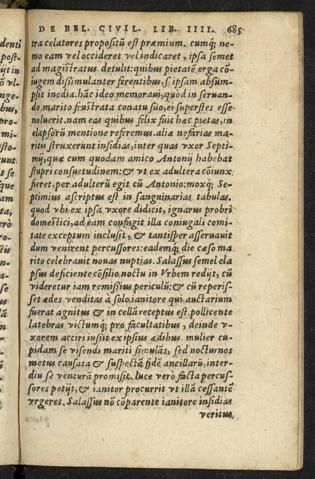 DE BEL. CIVIL. LIB. IIII. 685
tra celatores propositũ est præmium. cumq́; ne-
mo eam vel occideret vel indicaret, ipsa semet
ad magistratus detulit: quibus pietatẽ erga cõ-
iugem dissimulanter ferentibus, se ipsam absum-
psit inedia. hæc ideo memoraui, quod in seruan-
do marito frustrata conatu suo, ei superstes esse
noluerit. nam eas quibus felix fuit hæc pietas, in
elapsorũ mentione referemus. aliæ nefarias ma-
ritu struxerunt insidias, inter quas vxor Septi-
mij, quæ cum quodam amico Antonij habebat
stupri consuetudinem: & vt ex adultera cõiunx
fieret, per adulterũ egit cũ Antonio: moxq́; Se-
ptimius ascriptus est in sanguinarias tabulas.
quod vbi ex ipsa vxore didicit, ignarus probri
domestici, ad eam confugit. illa coniugali comi-
tate exceptum inclusit, & tantisper asseruauit
dum venirent percussores: eademq́; die cæso ma
rito celebrauit nouas nuptias. Salassus semel ela
psus deficiente cõsilio, noctu in Vrbem redijt, cũ
videretur iam remissius periculũ: & cũ reperis-
set ædes venditas à solo ianitore qui auctarium
fuerat agnitus & in cellã receptus est. pollicente
latebras victumq́; pro facultatibus, deinde v-
xorem acciri iussit ex ipsius ædibus. mulier cu-
pidam se visendi mariti simulãs, sed nocturnos
metus causata & suspectã fidẽ ancillarũ, inter-
diu se venturã promisit. luce verò facta percus-
sores petijt, & ianitor procurrit vt illã cessantẽ
vrgeret. Salassus nõ cõparente ianitore insidias
veritus,
denti
post-
ijt in
vl-
nge-
bus,
pro-
mi-
sto-
cunt
t se
que
am
ta,
erò